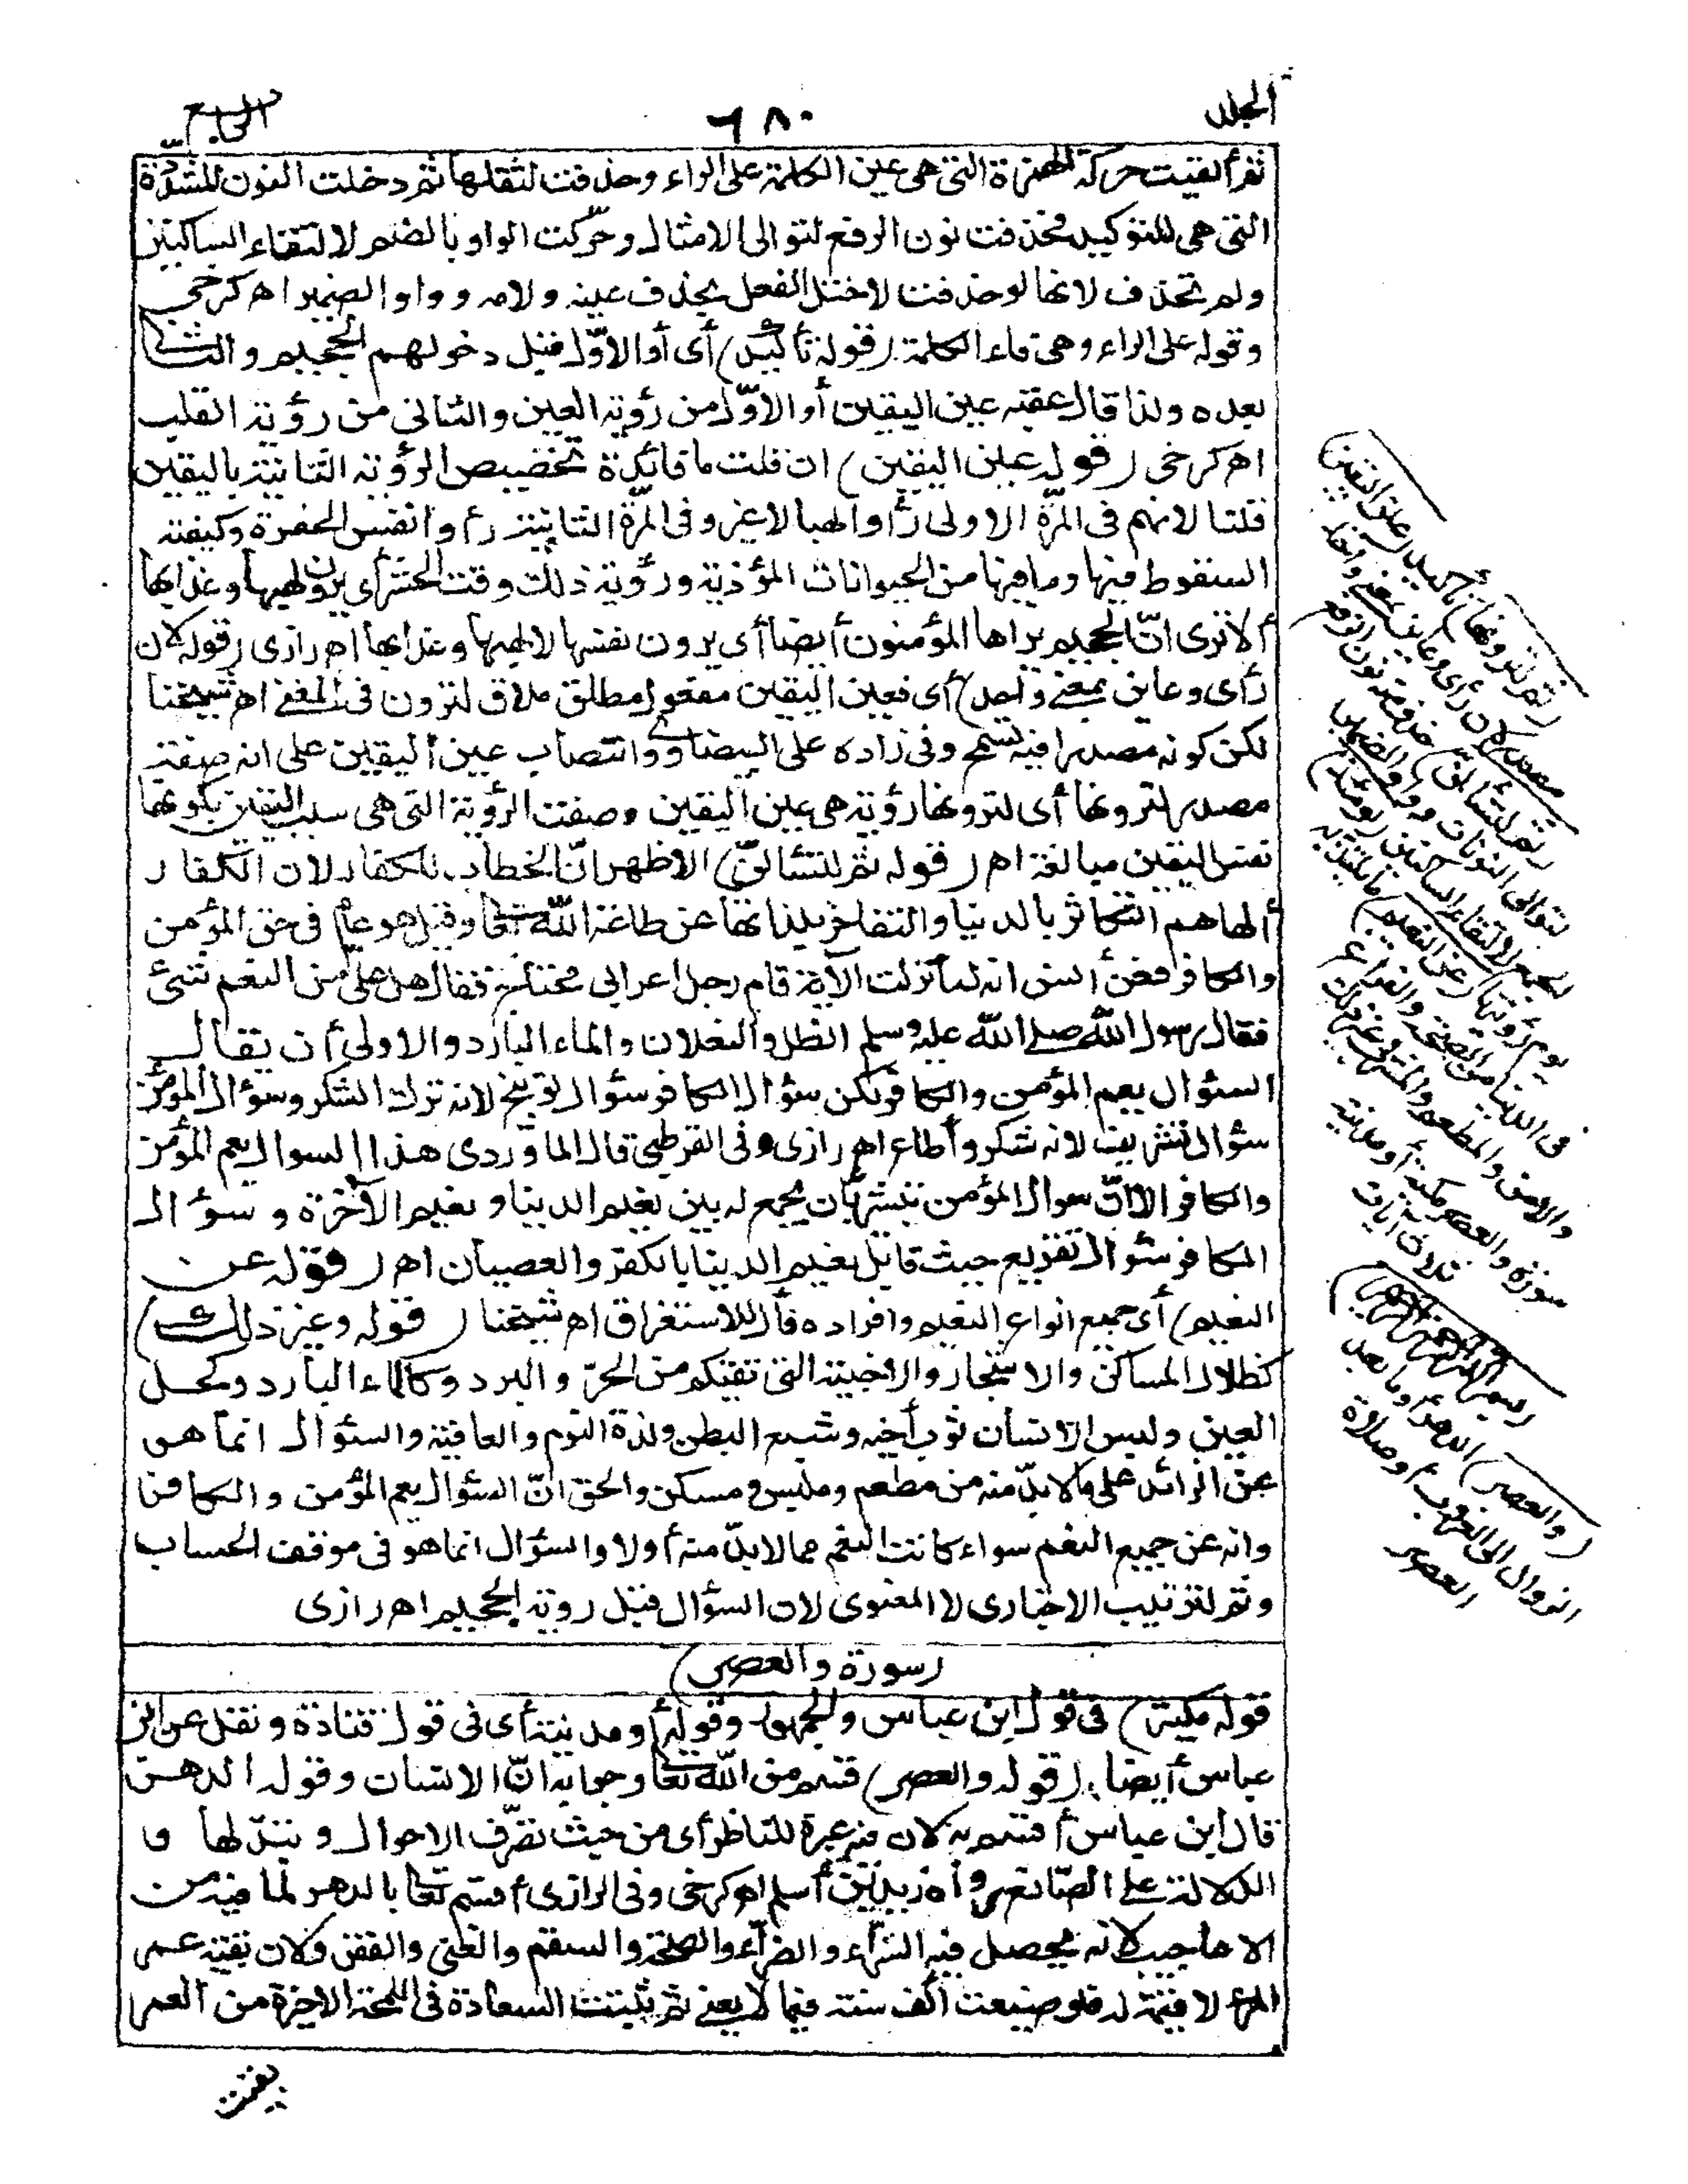 الجلد
٦٨٠
الرابع
ثم ألقيت حركة الهمزة التي هي عين الكلمة على الراء وحذفت لثقلها ثم دخلت النون المشدّدة
التي هي للتوكيد فحذفت نون الرفع لتوالى الامثال وحرّكت الواو بالضم لالتقاء الساكنين
ولم تحذف لانها لو حذفت لاختل الفعل بحذف عينه ولامه وواو الضمير اه كرخى
وقوله على الراء وهى فاء الكلمة (قوله تأكيد) أى أو الاوّل قبل دخولهم الجحيم والثانى
بعده ولذا قال عقبه عين اليقين أو الاوّل من رؤية العين والثانى من رؤية القلب
اه كرخى (قوله عين اليقين) ان قلت ما فائدة تخصيص الرؤية الثانية باليقين
قلنا لانهم فى المرّة الاولى رأوا لهبا لا غير وفى المرّة الثانية رأوا نفس الحفرة وكيفية
السقوط فيها وما فيها من الحيوانات المؤذية ورؤية ذلك وقت الحشر أى يرون لهبها وعذابها
ألا ترى انّ الجحيم يراها المؤمنون أيضا أى يرون نفسها لا لهبها وعذابها اه رازى (قوله لان
رأى وعاين بمعنى واحد) أى فعين اليقين مفعول مطلق ملاق لترون فى المعنى اه شيخنا
لكن كونه مصدرا فيه تسمح وفى زاده على البيضاوى وانتصاب عين اليقين على انه صفة
مصدر لترونها أى لترونها رؤية هى عين اليقين وصفت الرؤية التى هى سبب اليقين بكونها
نفس اليقين مبالغة اه (قوله ثم لتسألنّ) الاظهر انّ الخطاب للكفار لان الكفار
ألهاهم التكاثر بالدنيا والتفاخر بلذاتها عن طاعة الله تعالى وقيل هو عام فى حق المؤمن
والكافر فعن أنس انه لما نزلت الآية قام رجل اعرابى محتاج فقال هل علىّ من النعم شئ
فقال رسول الله صلى الله عليه وسلم الظل والنعلان والماء البارد والاولى أن يقال
السؤال يعم المؤمن والكافر لكن سؤال الكافر سؤال توبيخ لانه ترك الشكر وسؤال المؤمن
سؤال تشريف لانه شكر وأطاع اه رازى وفى القرطبى قال الماوردى هذا السوال يعم المؤمن
والكافر الا انّ سوال المؤمن تبشير بان يجمع له بين نعيم الدنيا ونعيم الآخرة وسؤال
الكافر سؤال تقريع حيث قابل نعيم الدنيا بالكفر والعصيان اه (قوله عن
النعيم) أى جميع انواع النعيم وافراده فأل للاستغراق اه شيخنا (قوله وغير ذلك)
كظلال المساكن والاشجار والاخبية التى تقيكم من الحرّ والبرد وكالماء البارد وكحل
العين ولبس الانسان ثوب أخيه وشبع البطن ولذة النوم والعافية والسئوال انما هو
عن الزائد على ما لا بدّ منه من مطعم وملبس ومسكن والحق انّ السئوال يعم المؤمن والكافر
وانه عن جميع النعم سواء كانت النعم مما لا بدّ منه أو لا والسؤال انما هو فى موقف الحساب
وثم لترتيب الاخبارى لا المعنوى لان السؤال قبل روية الجحيم اه رازى
(سورة والعصر)
قوله مكية) فى قول ابن عباس والجمهور وقوله أو مدنية أى فى قول قتادة ونقل عن ابن
عباس أيضا، (قوله والعصر) قسم من الله تعالى وجوابه انّ الانسان وقوله الدهر
قال ابن عباس أقسم به لان فيه عبرة للناظر أى من حيث تصرّف الاحوال وتبدّلها و
الدلالة على الصانع وأ زيد بن أسلم اه كرخى وفى الرازى أقسم تعالى بالدهر لما فيه من
الاعاجيب لانه يحصل فيه السرّاء والضرّاء والصحة والسقم والغنى والفقر ولان بقية عمر
المرء لا قيمة له فلو ضيعت ألف سنة فيما لا يعنى ثم ثبتت السعادة فى اللمحة الاخيرة من العمر
(ثم لترونها) تأكيد (عين اليقين)
مصدر لان رأى وعاين بمعنى واحد
(ثم لتسألنّ) حذف منه نون الرفع
لتوالى النونات وواو الضمير
الجمع لالتقاء الساكنين (يومئذ)
يوم رؤيتها (عن النعيم) ما يلتذ به
فى الدنيا من الصحة والفراغ
والامن والمطعم والمشرب وغير ذلك
سورة والعصر مكية أو مدنية
ثلاث آيات
(بسم الله الرحمن الرحيم)
(والعصر) الدهر أو ما بعد
الزوال الى الغروب أو صلاة
العصر